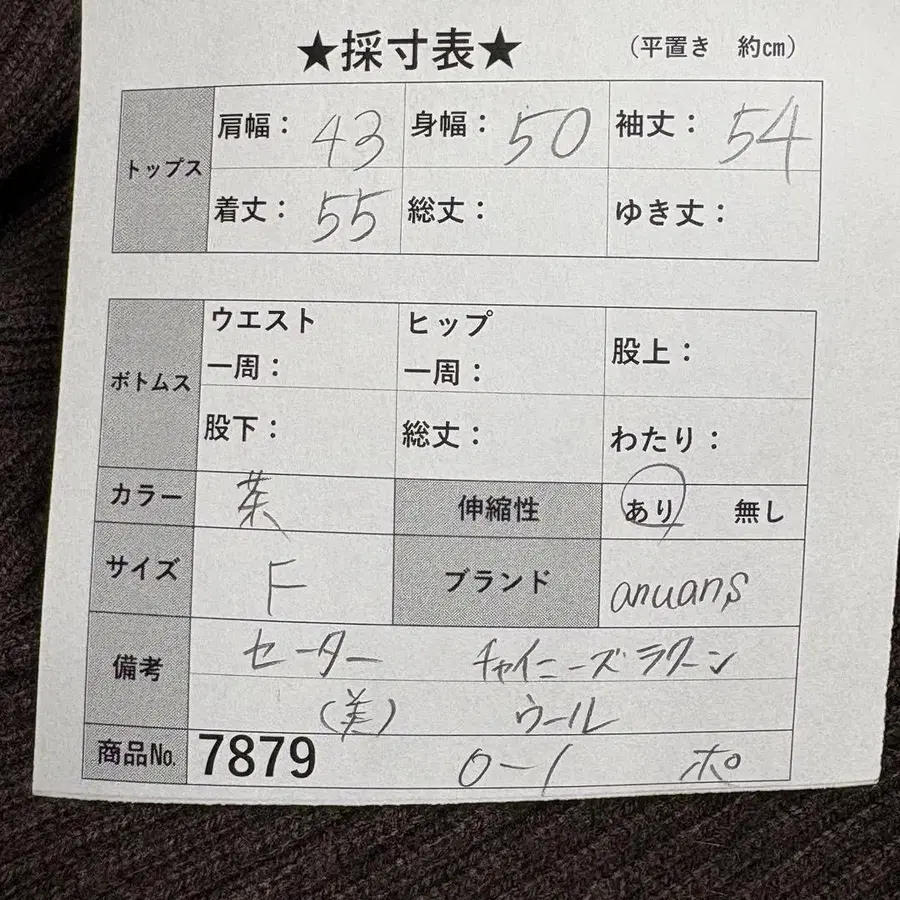 ★採寸表★ （平置き 約cm）
トップス 肩幅： 43 身幅： 50 袖丈： 54
着丈： 55 総丈： ゆき丈：
ボトムス ウエスト一周： ヒップ一周： 股上：
股下： 総丈： わたり：
カラー 茶 伸縮性 あり 無し
サイズ F ブランド anuans
備考 セーター チャイニーズラクーン
（美） ウール
商品No. 7879 0-1 ポ